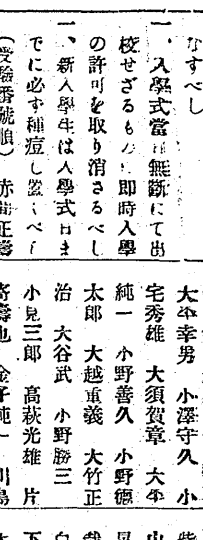 なすべし
一、入學式當日無斷にて出
校せざるものは即時入學
の許可を取り消さるべし
一、新入學生は入學式日ま
でに必ず種痘し置くべし
（受驗番號順）赤 正壽
大 幸男 小澤守久 小
宅秀雄 大須賀章 大
純一 小野善久 小野德
太郎 大越重義 大竹正
治 大谷武 小野勝三
小見三郎 高萩光雄 片
寄壽也 金子純一 川島